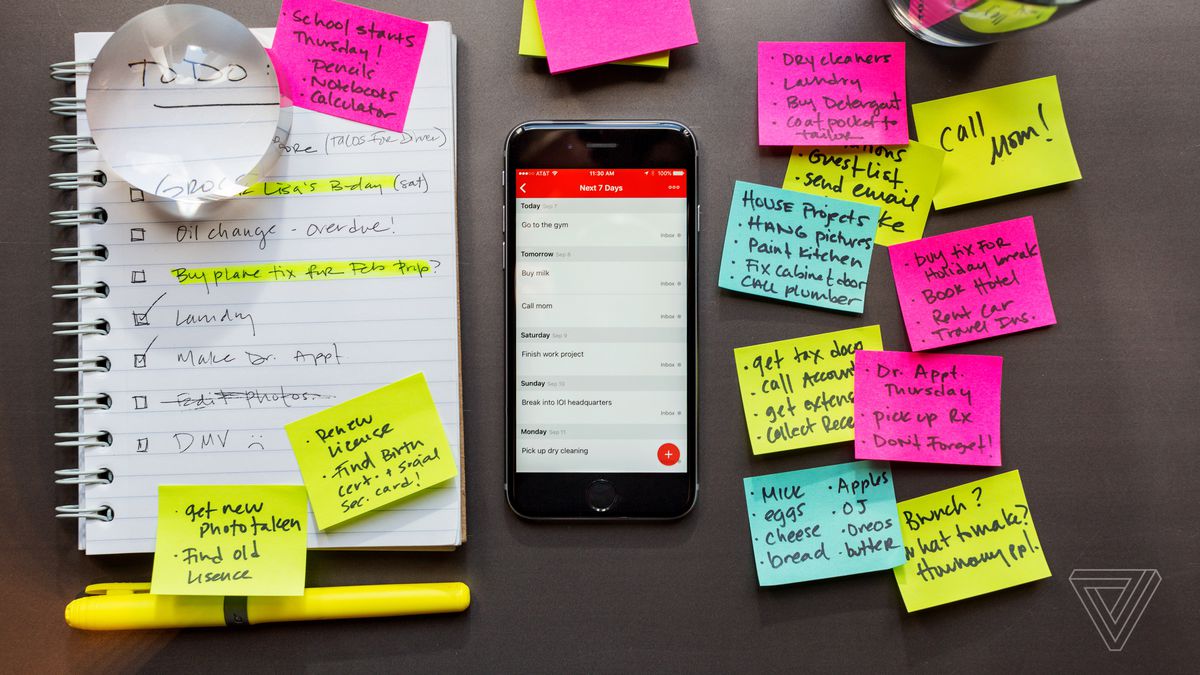 TO DO:
GROC
(TACOS FOR Dinner)
Lisa's B-day (sat)
Oil change - overdue!
Buy plane tix for Feb trip?
Laundry
Make Dr. Appt.
Edit Photos.
DMV :(
• School starts
Thursday!
• Pencils
• Notebooks
• Calculator
• Renew
License
• Find Birth
cert. + Social
Sec. card!
• get new
photo taken
• Find old
Lisence
AT&T
11:30 AM
100%
Next 7 Days
Today Sep 7
Go to the gym
Inbox
Tomorrow Sep 8
Buy milk
Inbox
Call mom
Inbox
Saturday Sep 9
Finish work project
Inbox
Sunday Sep 10
Break into IOI headquarters
Inbox
Monday Sep 11
Pick up dry cleaning
+
• Dry cleaners
• Laundry
• Buy Detergent
• Coat pocket to
tailor
Call
Mom!
Guest list.
• send email
HOUSE Projects
• HANG pictures
• Paint kitchen
• Fix cabinet door
CALL plumber
• buy tix FOR
Holiday break
• Book Hotel
• Rent Car
• Travel Ins.
• get tax docs
• call Account
• get extens
• Collect Rece
• Dr. Appt.
Thursday
• pick up Rx
• Don't Forget!
• Milk
• eggs
• cheese
• bread
• Apples
• OJ
• Oreos
• butter
Brunch?
what to make?
How many ppl.